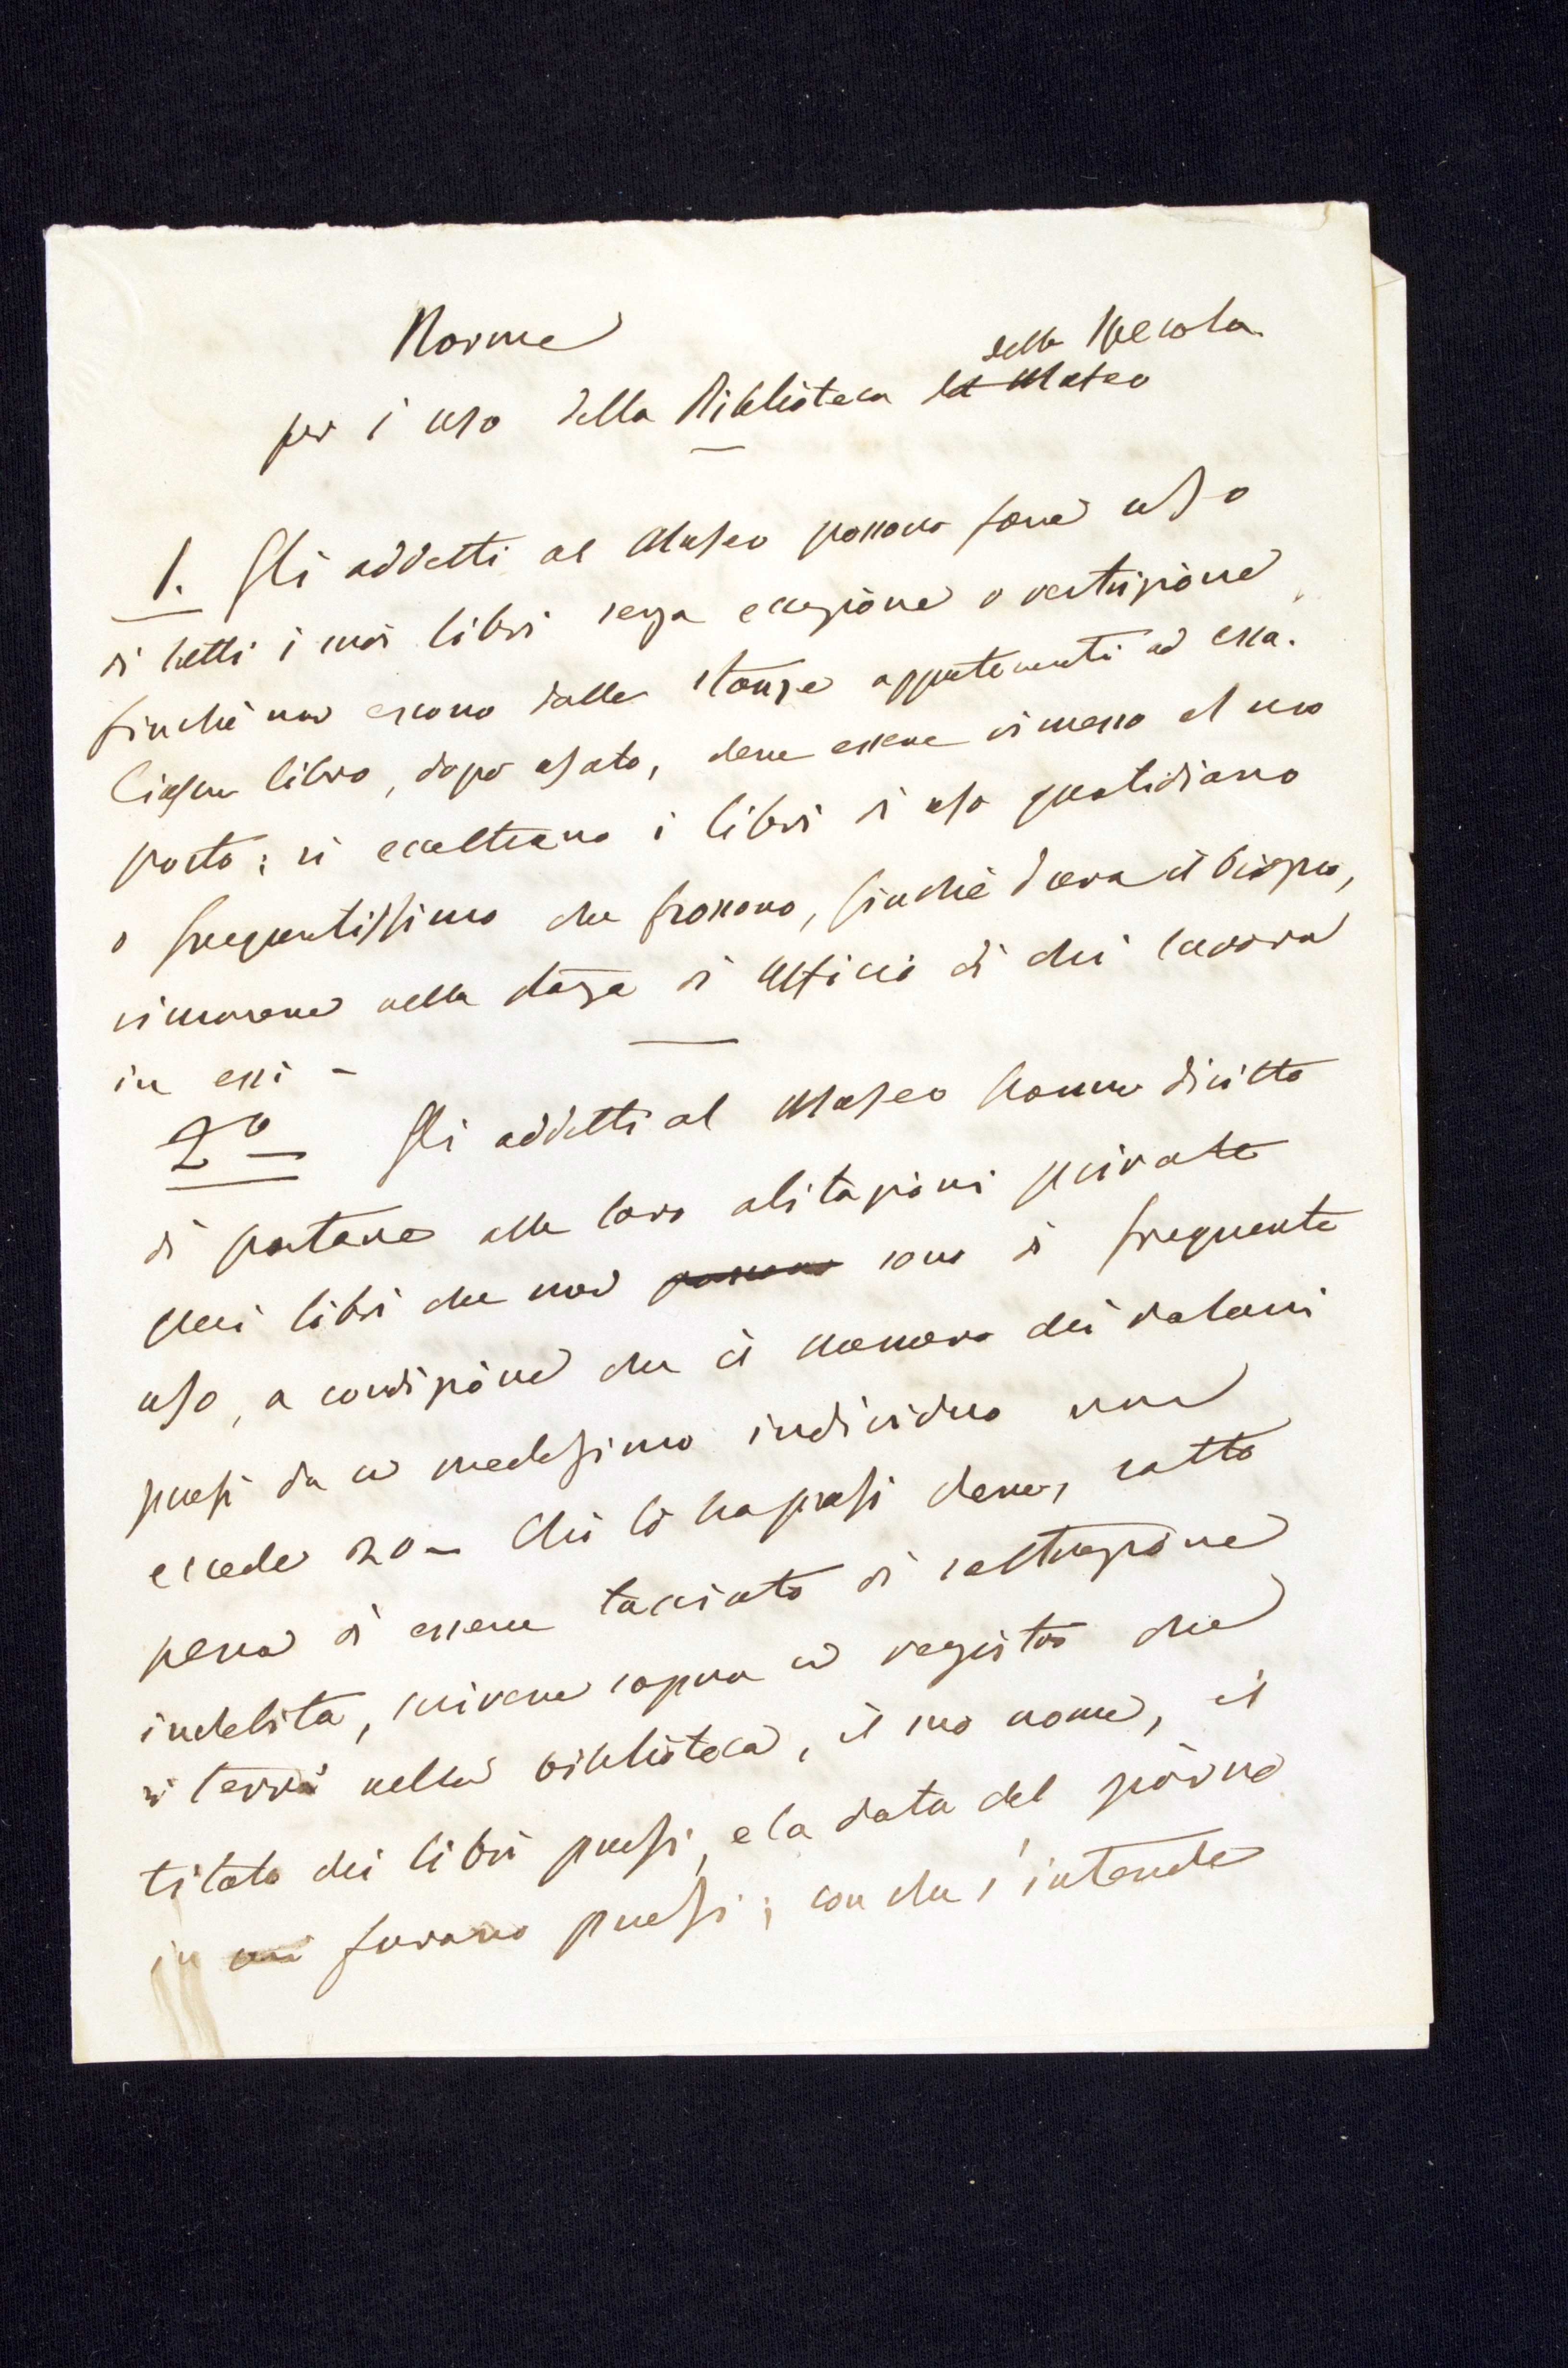 Norme
della Specola
per l'uso della Biblioteca del Museo
1. Gli addetti al Museo possono fare uso
di tutti i suoi libri senza eccezione o restrizione
finchè non escono dalle stanze appartenenti ad essa.
Ciascun libro, dopo usato, deve essere rimesso al suo
posto: si eccettuano i libri di uso quotidiano
o frequentissimo che possono, finchè dura il bisogno,
rimanere nella stanza di Ufficio di chi lavora
in essi -
2º Gli addetti al Museo hanno diritto
di portare alle loro abitazioni private
quei libri che non possono sono di frequente
uso, a condizione che il numero dei volumi
presi da un medesimo individuo non
ecceda 20 - Chi li ha presi deve, sotto
pena di essere tacciato di sottrazione
indebita, scrivere sopra un registro che
si terrà nella biblioteca, il suo nome, il
titolo dei libri presi, e la data del giorno
in cui furano presi; con che s'intende